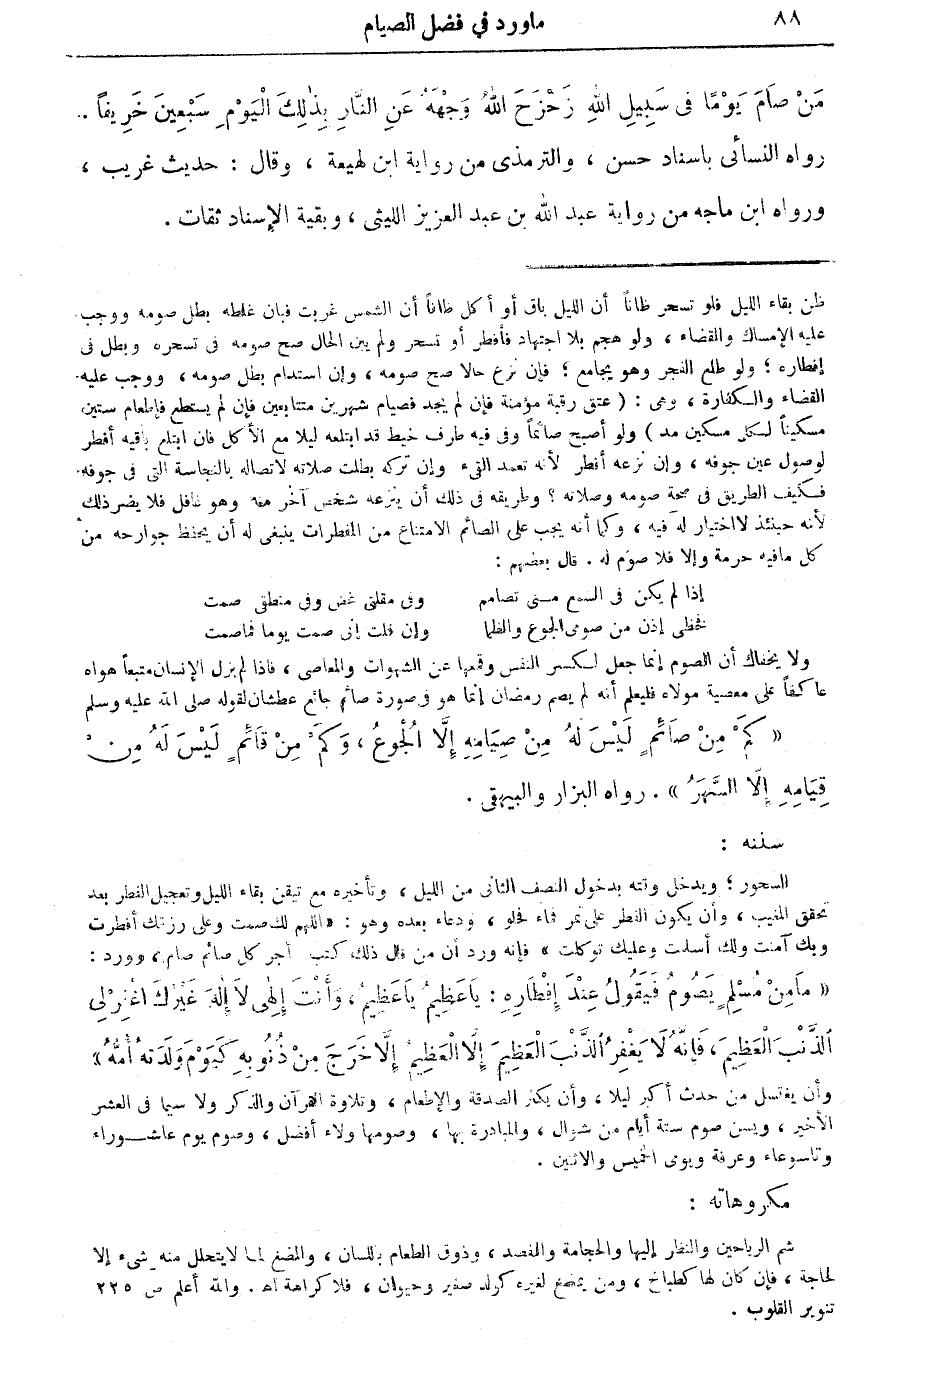 ٨٨
ماورد في فضل الصيام
مَنْ صَامَ يَوْمًا فى سَبِيلِ اللهِ زَحْزَحَ اللهُ وَجْهَهُ عَنِ النَّارِ بِذٰلِكَ الْيَوْمِ سَبْعِينَ خَرِيفاً .
رواه النسائى باسناد حسن ، والترمذى من رواية ابن لهيعة ، وقال : حديث غريب ،
ورواه ابن ماجه من رواية عبد الله بن عبد العزيز الليثى ، وبقية الإسناد ثقات .
ظن بقاء الليل فلو تسحر ظاناً أن الليل باق أو أكل ظاناً أن الشمس غربت فبان غلطه بطل صومه ووجب
عليه الإمساك والقضاء ، ولو هجم بلا اجتهاد فأفطر أو تسحر ولم يبن الحال صح صومه فى تسحره وبطل فى
إفطاره ؛ ولو طلع الفجر وهو يجامع ؛ فإن نزع حالا صح صومه ، وإن استدام بطل صومه ، ووجب عليه
القضاء والكفارة ، وهى : ( عتق رقبة مؤمنة فإن لم يجد فصيام شهرين متتابعين فإن لم يستطع فإطعام ستين
مسكيناً لكل مسكين مد ) ولو أصبح صائماً وفى فيه طرف خيط قد ابتلعه ليلا مع الأكل فان ابتلع باقيه أفطر
لوصول عين جوفه ، وإن نزعه أفطر لأنه تعمد القىء وإن تركه بطلت صلاته لاتصاله بالنجاسة التى فى جوفه
فكيف الطريق فى صحة صومه وصلاته ؟ وطريقه فى ذلك أن ينزعه شخص آخر منه وهو غافل فلا يضر ذلك
لأنه حينئذ لااختيار له فيه ، وكما أنه يجب على الصائم الامتناع من المفطرات ينبغى له أن يحفظ جوارحه من
كل مافيه حرمة وإلا فلا صوم له . قال بعضهم :
إذا لم يكن فى السمع منى تصامم وفى مقلتى غض وفى منطقى صمت
فحظى إذن من صومى الجوع والظما وإن قلت إنى صمت يوما فماصمت
ولا يخفاك أن الصوم إنما جعل لكسر النفس وقمعها عن الشهوات والمعاصى ، فاذا لم يزل الإنسان متبعاً هواه
عاكفاً على معصية مولاه فليعلم أنه لم يصم رمضان إنما هو فى صورة صائم جائع عطشان لقوله صلى الله عليه وسلم
« كَمْ مِنْ صَائِمٍ لَيْسَ لَهُ مِنْ صِيَامِهِ إِلَّا الْجُوعُ ، وَكَمْ مِنْ قَائِمٍ لَيْسَ لَهُ مِنْ
قِيَامِهِ إِلَّا السَّهَرُ » . رواه البزار والبيهقى .
سننه :
السحور ؛ ويدخل وقته بدخول النصف الثانى من الليل ، وتأخيره مع تيقن بقاء الليل وتعجيل الفطر بعد
تحقق المغيب ، وأن يكون الفطر على تمر فماء فحلو ، ودعاء بعده وهو : « اللهم لك صمت وعلى رزقك أفطرت
وبك آمنت ولك أسلمت وعليك توكلت » فإنه ورد أن من قال ذلك كتب أجر كل صائم صام ، وورد :
« مَامِنْ مُسْلِمٍ يَصُومُ فَيَقُولُ عِنْدَ إِفْطَارِهِ : يَاعَظِيمُ يَاعَظِيمُ ، وَأَنْتَ إِلٰهِى لَا إِلٰهَ غَيْرُكَ اغْفِرْ لِى
الذَّنْبَ الْعَظِيمَ ، فَإِنَّهُ لَا يَغْفِرُ الذَّنْبَ الْعَظِيمَ إِلَّا الْعَظِيمُ إِلَّا خَرَجَ مِنْ ذُنُوبِهِ كَيَوْمَ وَلَدَتْهُ أُمُّهُ »
وأن يغتسل من حدث أكبر ليلا ، وأن يكثر الصدقة والإطعام ، وتلاوة القرآن والذكر ولا سيما فى العشر
الأخير ، ويسن صوم ستة أيام من شوال ، والمبادرة بها ، وصومها ولاء أفضل ، وصوم يوم عاشوراء
وتاسوعاء وعرفة ويومى الخميس والاثنين .
مكروهاته :
شم الرياحين والنظر إليها والحجامة والفصد ، وذوق الطعام باللسان ، والمضغ لما لايتحلل منه شىء إلا
لحاجة ، فإن كان لها كطباخ ، ومن يمضغ لغيره كولد صغير وحيوان ، فلا كراهة اه . والله أعلم ص ٢٢٥
تنوير القلوب .